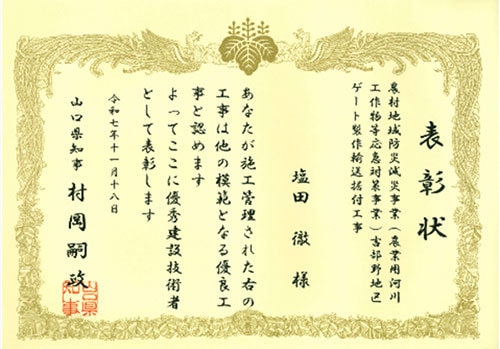 表彰状
農村地域防災減災事業(農業用河川
工作物等応急対策事業)吉部野地区
ゲート製作輸送据付工事
塩田徹様
あなたが施工管理された右の
工事は他の模範となる優良工
事と認めます
よってここに優秀建設技術者
として表彰します
令和七年十一月十八日
山口県知事 村岡嗣政
山口県知事